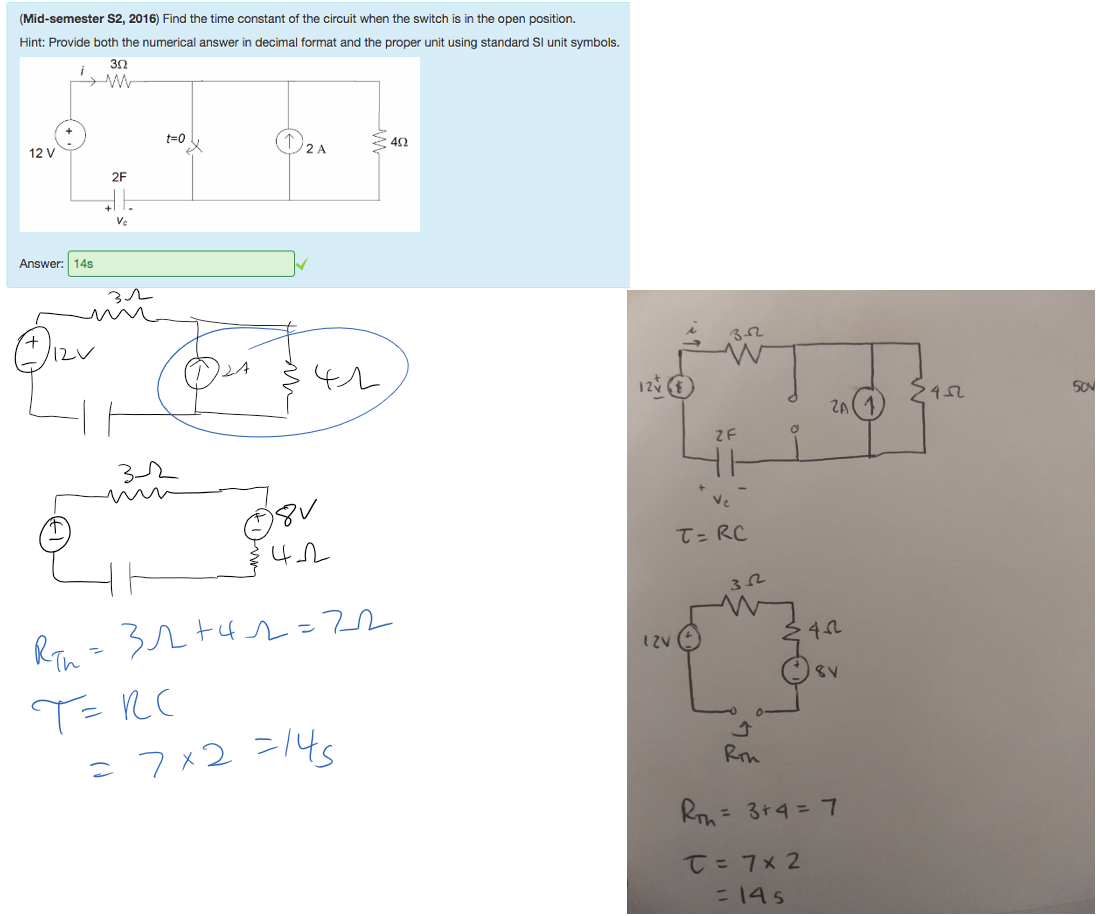 (Mid-semester S2, 2016) Find the time constant of the circuit when the switch is in the open position.
Hint: Provide both the numerical answer in decimal format and the proper unit using standard SI unit symbols.
i
3Ω
+
-
12 V
t=0
2 A
4Ω
2F
+ -
Vc
Answer: 14s
3Ω
+
-
12V
2A
4Ω
3Ω
+
-
8V
4Ω
RTh = 3Ω+4Ω=7Ω
τ= RC
= 7×2 =14s
i
3Ω
12V
+
-
2A
4Ω
50V
2F
+ -
Vc
τ= RC
3Ω
12V
+
-
4Ω
+
-
8V
RTh
RTh = 3+4 = 7
τ = 7×2
= 14s